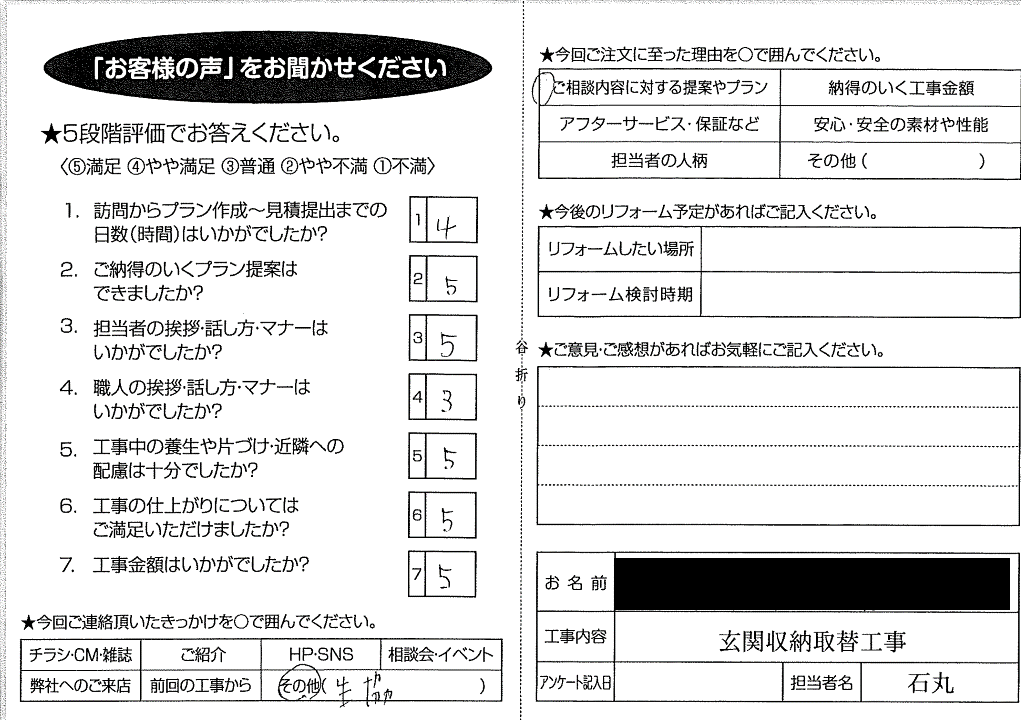 「お客様の声」をお聞かせください
★5段階評価でお答えください。
〈⑤満足 ④やや満足 ③普通 ②やや不満 ①不満〉
1. 訪問からプラン作成～見積提出までの
日数(時間)はいかがでしたか?
1 4
2. ご納得のいくプラン提案は
できましたか?
2 5
3. 担当者の挨拶・話し方・マナーは
いかがでしたか?
3 5
4. 職人の挨拶・話し方・マナーは
いかがでしたか?
4 3
5. 工事中の養生や片づけ・近隣への
配慮は十分でしたか?
5 5
6. 工事の仕上がりについては
ご満足いただけましたか?
6 5
7. 工事金額はいかがでしたか?
7 5
★今回ご連絡頂いたきっかけを○で囲んでください。
チラシ・CM・雑誌 ご紹介 HP・SNS 相談会・イベント
弊社へのご来店 前回の工事から その他( 生協 )
谷折り
★今回ご注文に至った理由を○で囲んでください。
ご相談内容に対する提案やプラン 納得のいく工事金額
アフターサービス・保証など 安心・安全の素材や性能
担当者の人柄 その他( )
★今後のリフォーム予定があればご記入ください。
リフォームしたい場所
リフォーム検討時期
★ご意見・ご感想があればお気軽にご記入ください。
お名前
工事内容 玄関収納取替工事
アンケート記入日 担当者名 石丸